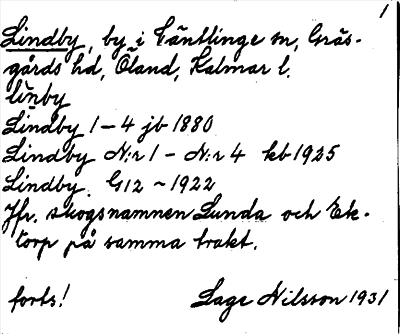 1
Lindby, by i Ventlinge sn, Gräs-
gårds hd, Öland, Kalmar l.
linby
Lindby 1–4 jb 1880
Lindby N:r 1 – N:r 4 kb 1925
Lindby. G12 ~ 1922
Jfr. skogsnamnen Lunda och Ek-
torp på samma trakt.
forts! Sage Nilsson 1931